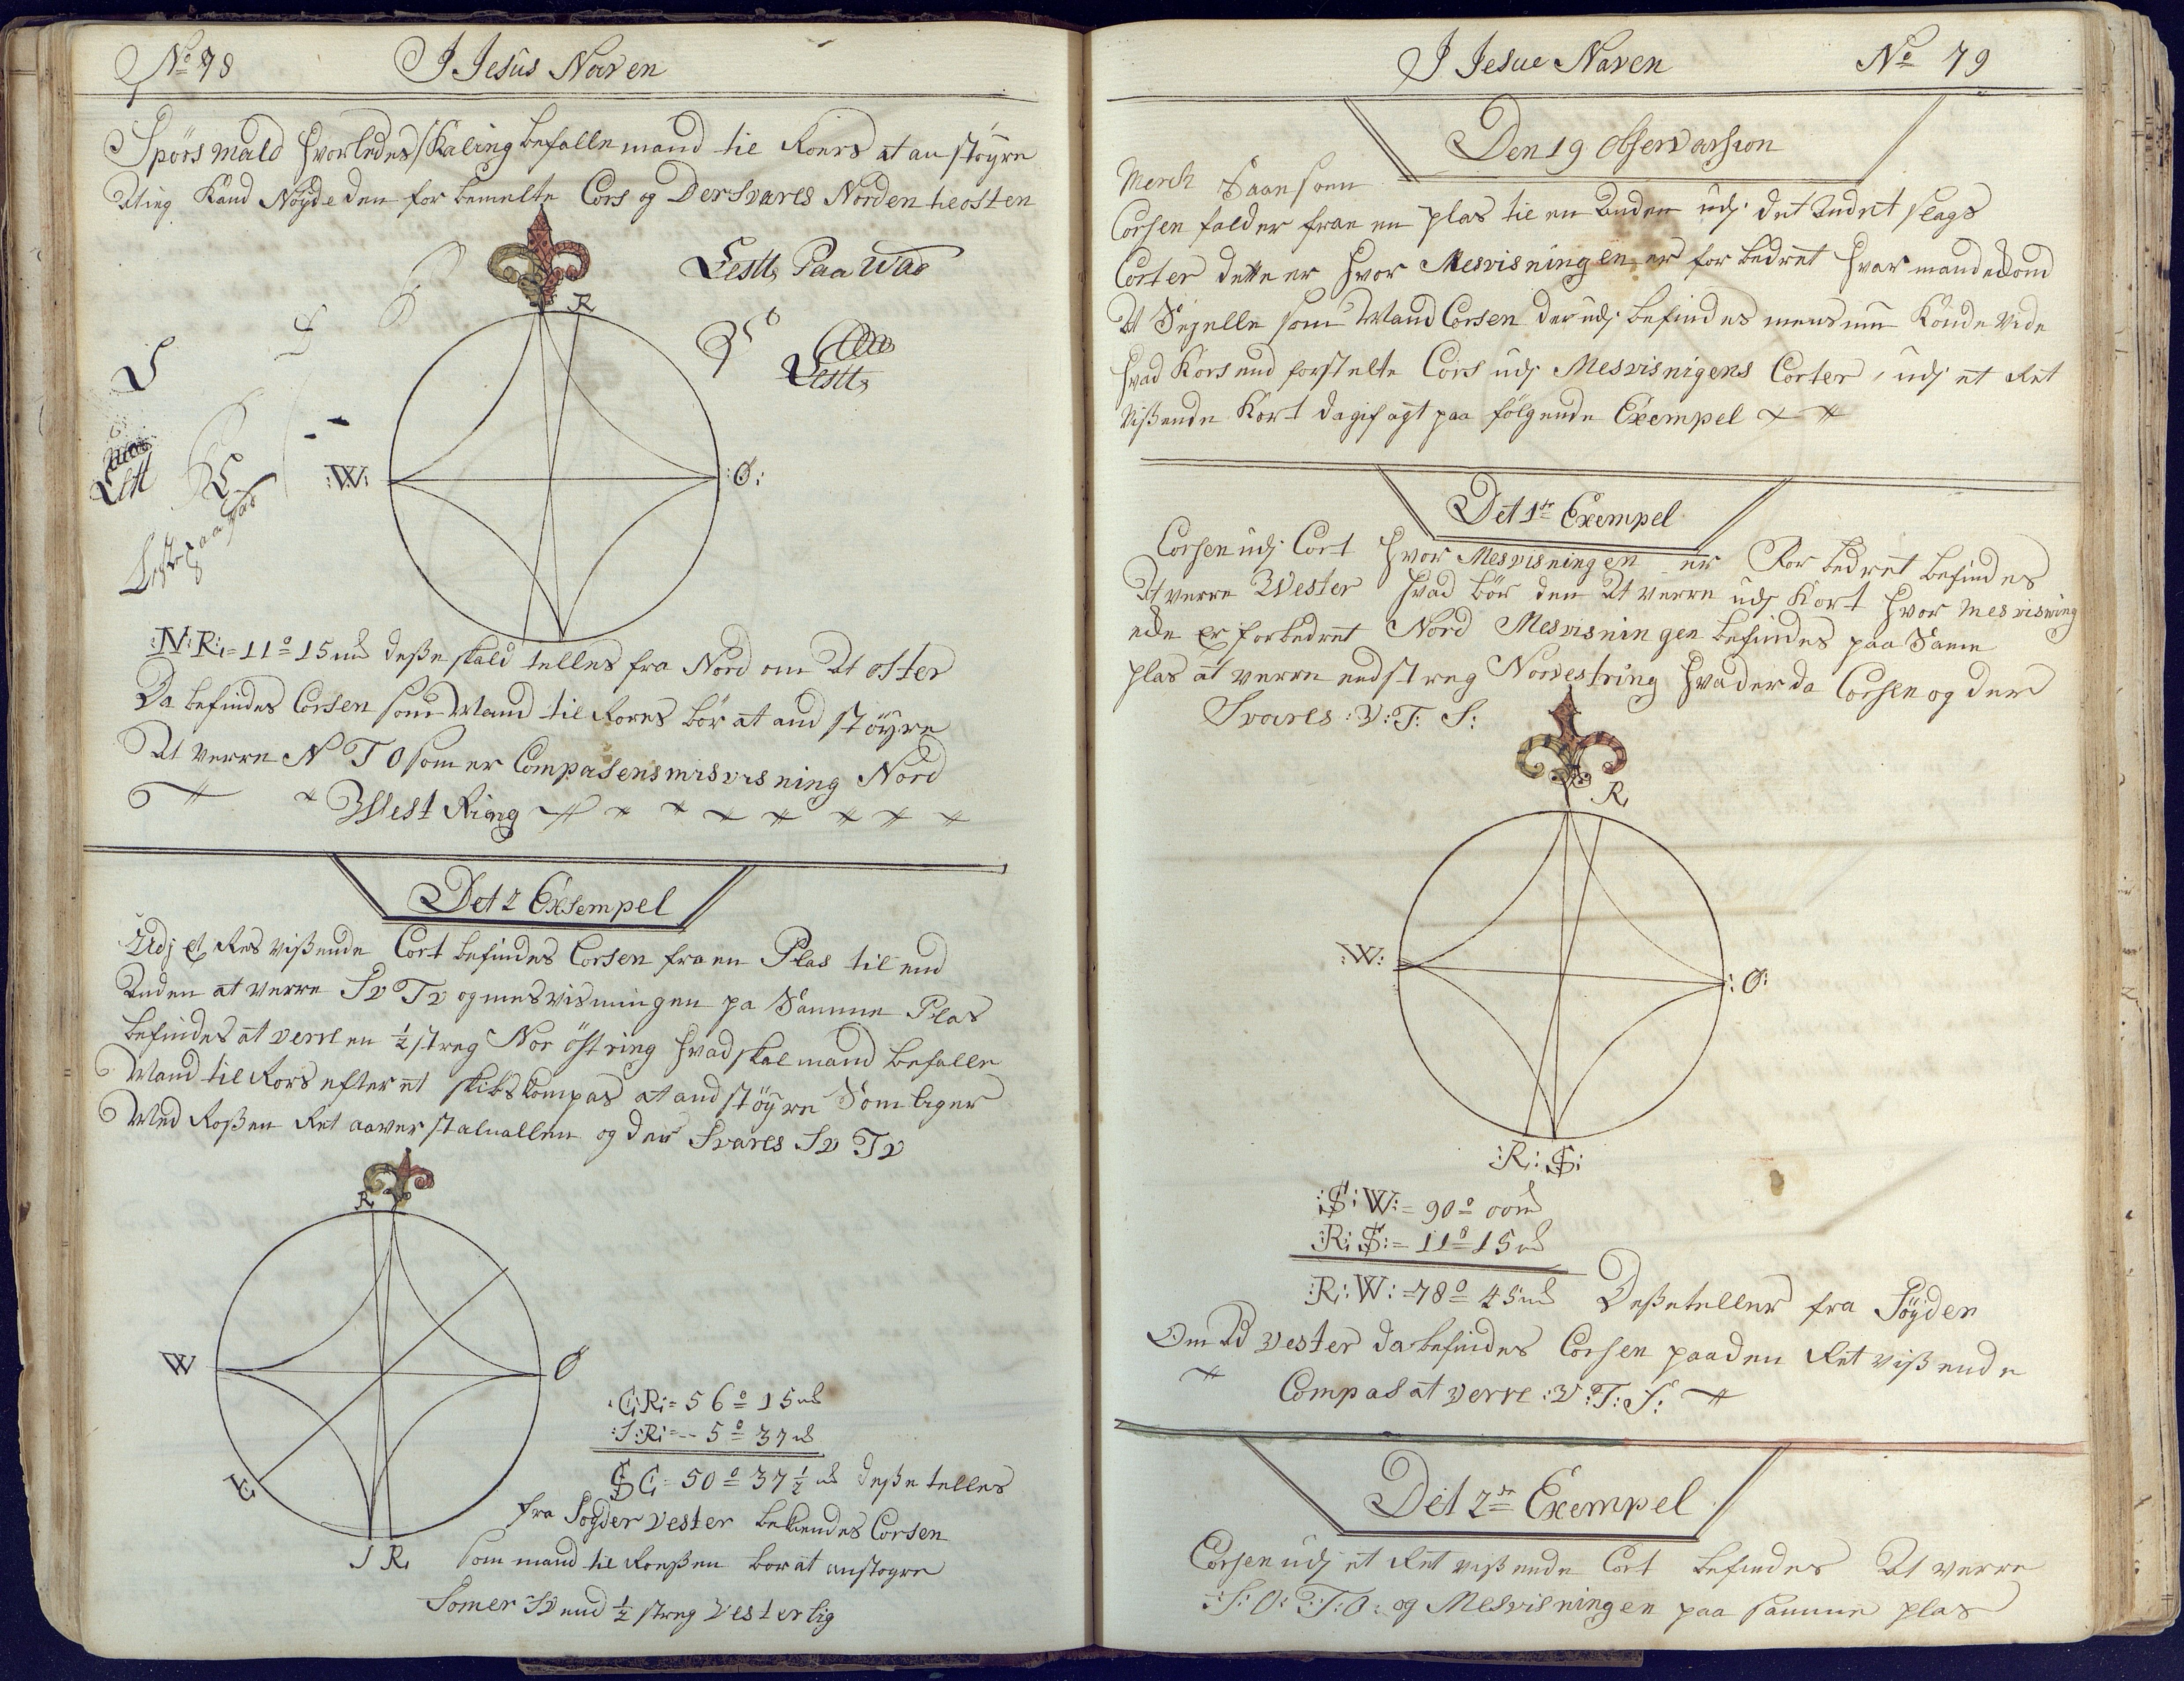 No 78
I Jesus Naven
Spörsmald hvorledes skal ieg befalle mand til Roers at anstöyre
At ieg Kand Nöyde den for bemelte Cors og Der Svares Norden til osten
Lestt Paa Was
R
Lestt
Lestt
:W:
:O:
:N:R:=11°15m deße skald telles fra Nord om At oster
Da befindes Corsen som Mand til Rores bör at and stöyre
At verre N T O som er Compasens misvisning Nord
West Ring
Det 2 Exsempel
Udj et Ret vißende Cort befindes Corsen fra en Plas til end
Anden at verre Sv Tv og mesvisningen pa Samme Plas
befindes at verre en ½ streg Nor östring hvad skal mand befalle
Mand til Rors efter et skibs kompas at and stöyre Som liger
Med Roßen Ret aaver staluallen og der Svares Sv Tv
R
W
O
C
S R
:C:R:= 56° 15m
:S:R:= -- 5° 37m
S C:= 50° 37½m deße telles
fra Söyder vester befiendes Corsen
som mand til Roeßen bor at anstogre
Som er Sv end ½ streg Vesterlig
I Jesue Naven
No 79
Den 19 Observarsion
Merch Saansom
Corsen falder fran en plas til en Anden udj det Andet slags
Corter dette er hvor Mesvisningen er for bedret hvar mand
At Segelle som Mand Corsen der udj befindes mens nu Konde vide
hvad Kors end forstelte Cors udj Mesvisnigens Corter, udj et Ret
vißende Kort da gif agt paa fölgende Exempel
Det 1te Exempel
Corsen udj Cort hvor Mesvisningen er For bedret befindes
At verre Wester hvad bör den At verre udj Kort hvor mesvisning
ede er forbedret Nord Mesvisningen befindes paa Same
plas at verre end streg Norvestring hvad er da Corsen og der
Svares :V:T:S:
R
:W:
:O:
:R: S:
:S:W:= 90° 00m
:R:S:= 11° 15m
:R:W:=78° 45m Deße teller fra Söyden
Om Ad vester da befindes Corsen paa den Ret vißende
Compas at verre :V:T:S:
Det 2de Exempel
Corsen udj et Ret vißende Cort befindes At verre
:S:O:T:O: og Mesvisningen paa samme plas